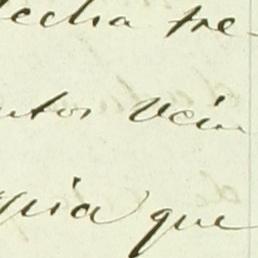 fecha tre-
ntos vein
pia que